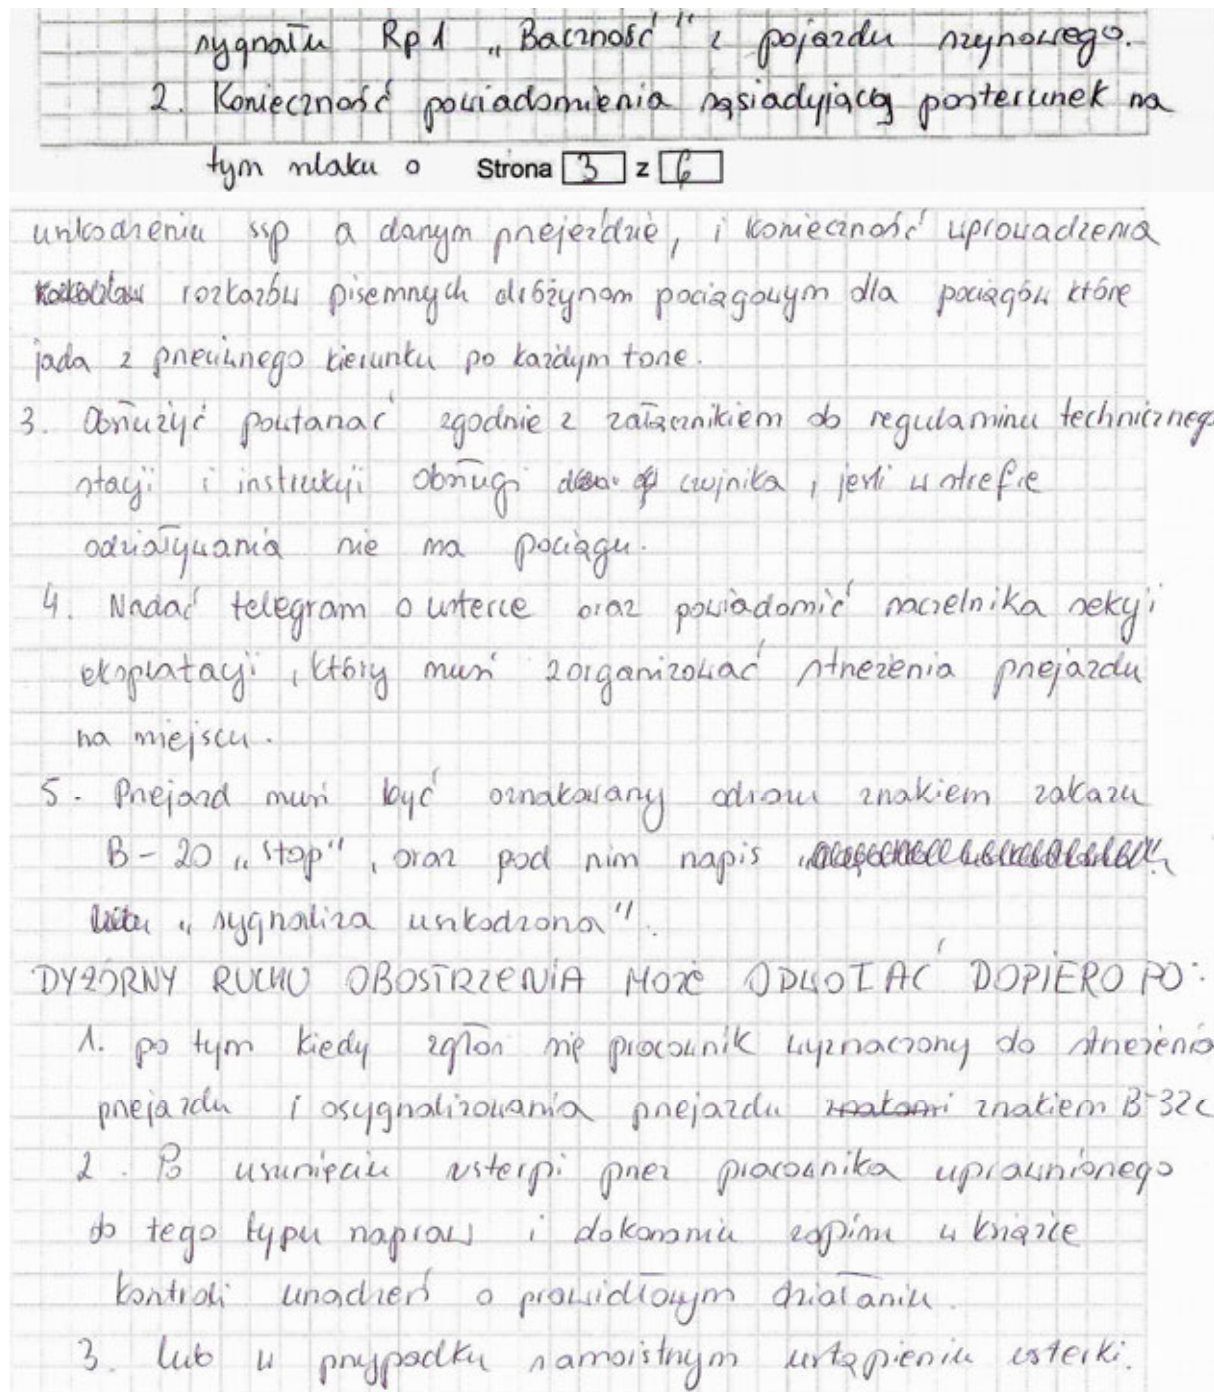 sygnału Rp1 „Baczność" z pojazdu szynowego.
2. Konieczność powiadomienia sąsiadyjącą posterunek na
tym szlaku o Strona 3 z 6
uszkodzeniu ssp a danym przejeździe, i konieczność wprowadzenia
rozkazów pisemnych dróżynom pociągowym dla pociągów które
jada z przeciwnego kierunku po każdym torze.
3. Obsłużyć powtarzać zgodnie z załącznikiem do regulaminu techniczneg
stacji i instrukcji obsługi czujnika, jesli w strefie
odziaływania nie ma pociągu.
4. Nadać telegram o usterce oraz powiadomić naczelnika sekcji
eksplatacji, który musi zorganizować strzeżenia przejazdu
na miejscu.
5. Przejazd musi być oznakowany odrazu znakiem zakazu
B-20 „stop", oraz pod nim napis
„sygnaliza uszkodzona".
DYŻÓRNY RUCHU OBOSTRZENIA MOŻE ODWOŁAĆ DOPIERO PO:
1. po tym kiedy zgłosi się pracownik wyznaczony do strzeżenia
przejazdu i osygnalizowania przejazdu znakami znakiem B-32c
2. Po usunięciu usterpi przez pracownika uprawnionego
do tego typu napraw i dokonaniu zapisu w książce
kontroli urządzeń o prawidłowym działaniu.
3. lub w przypadku samoistnym ustąpieniu usterki.